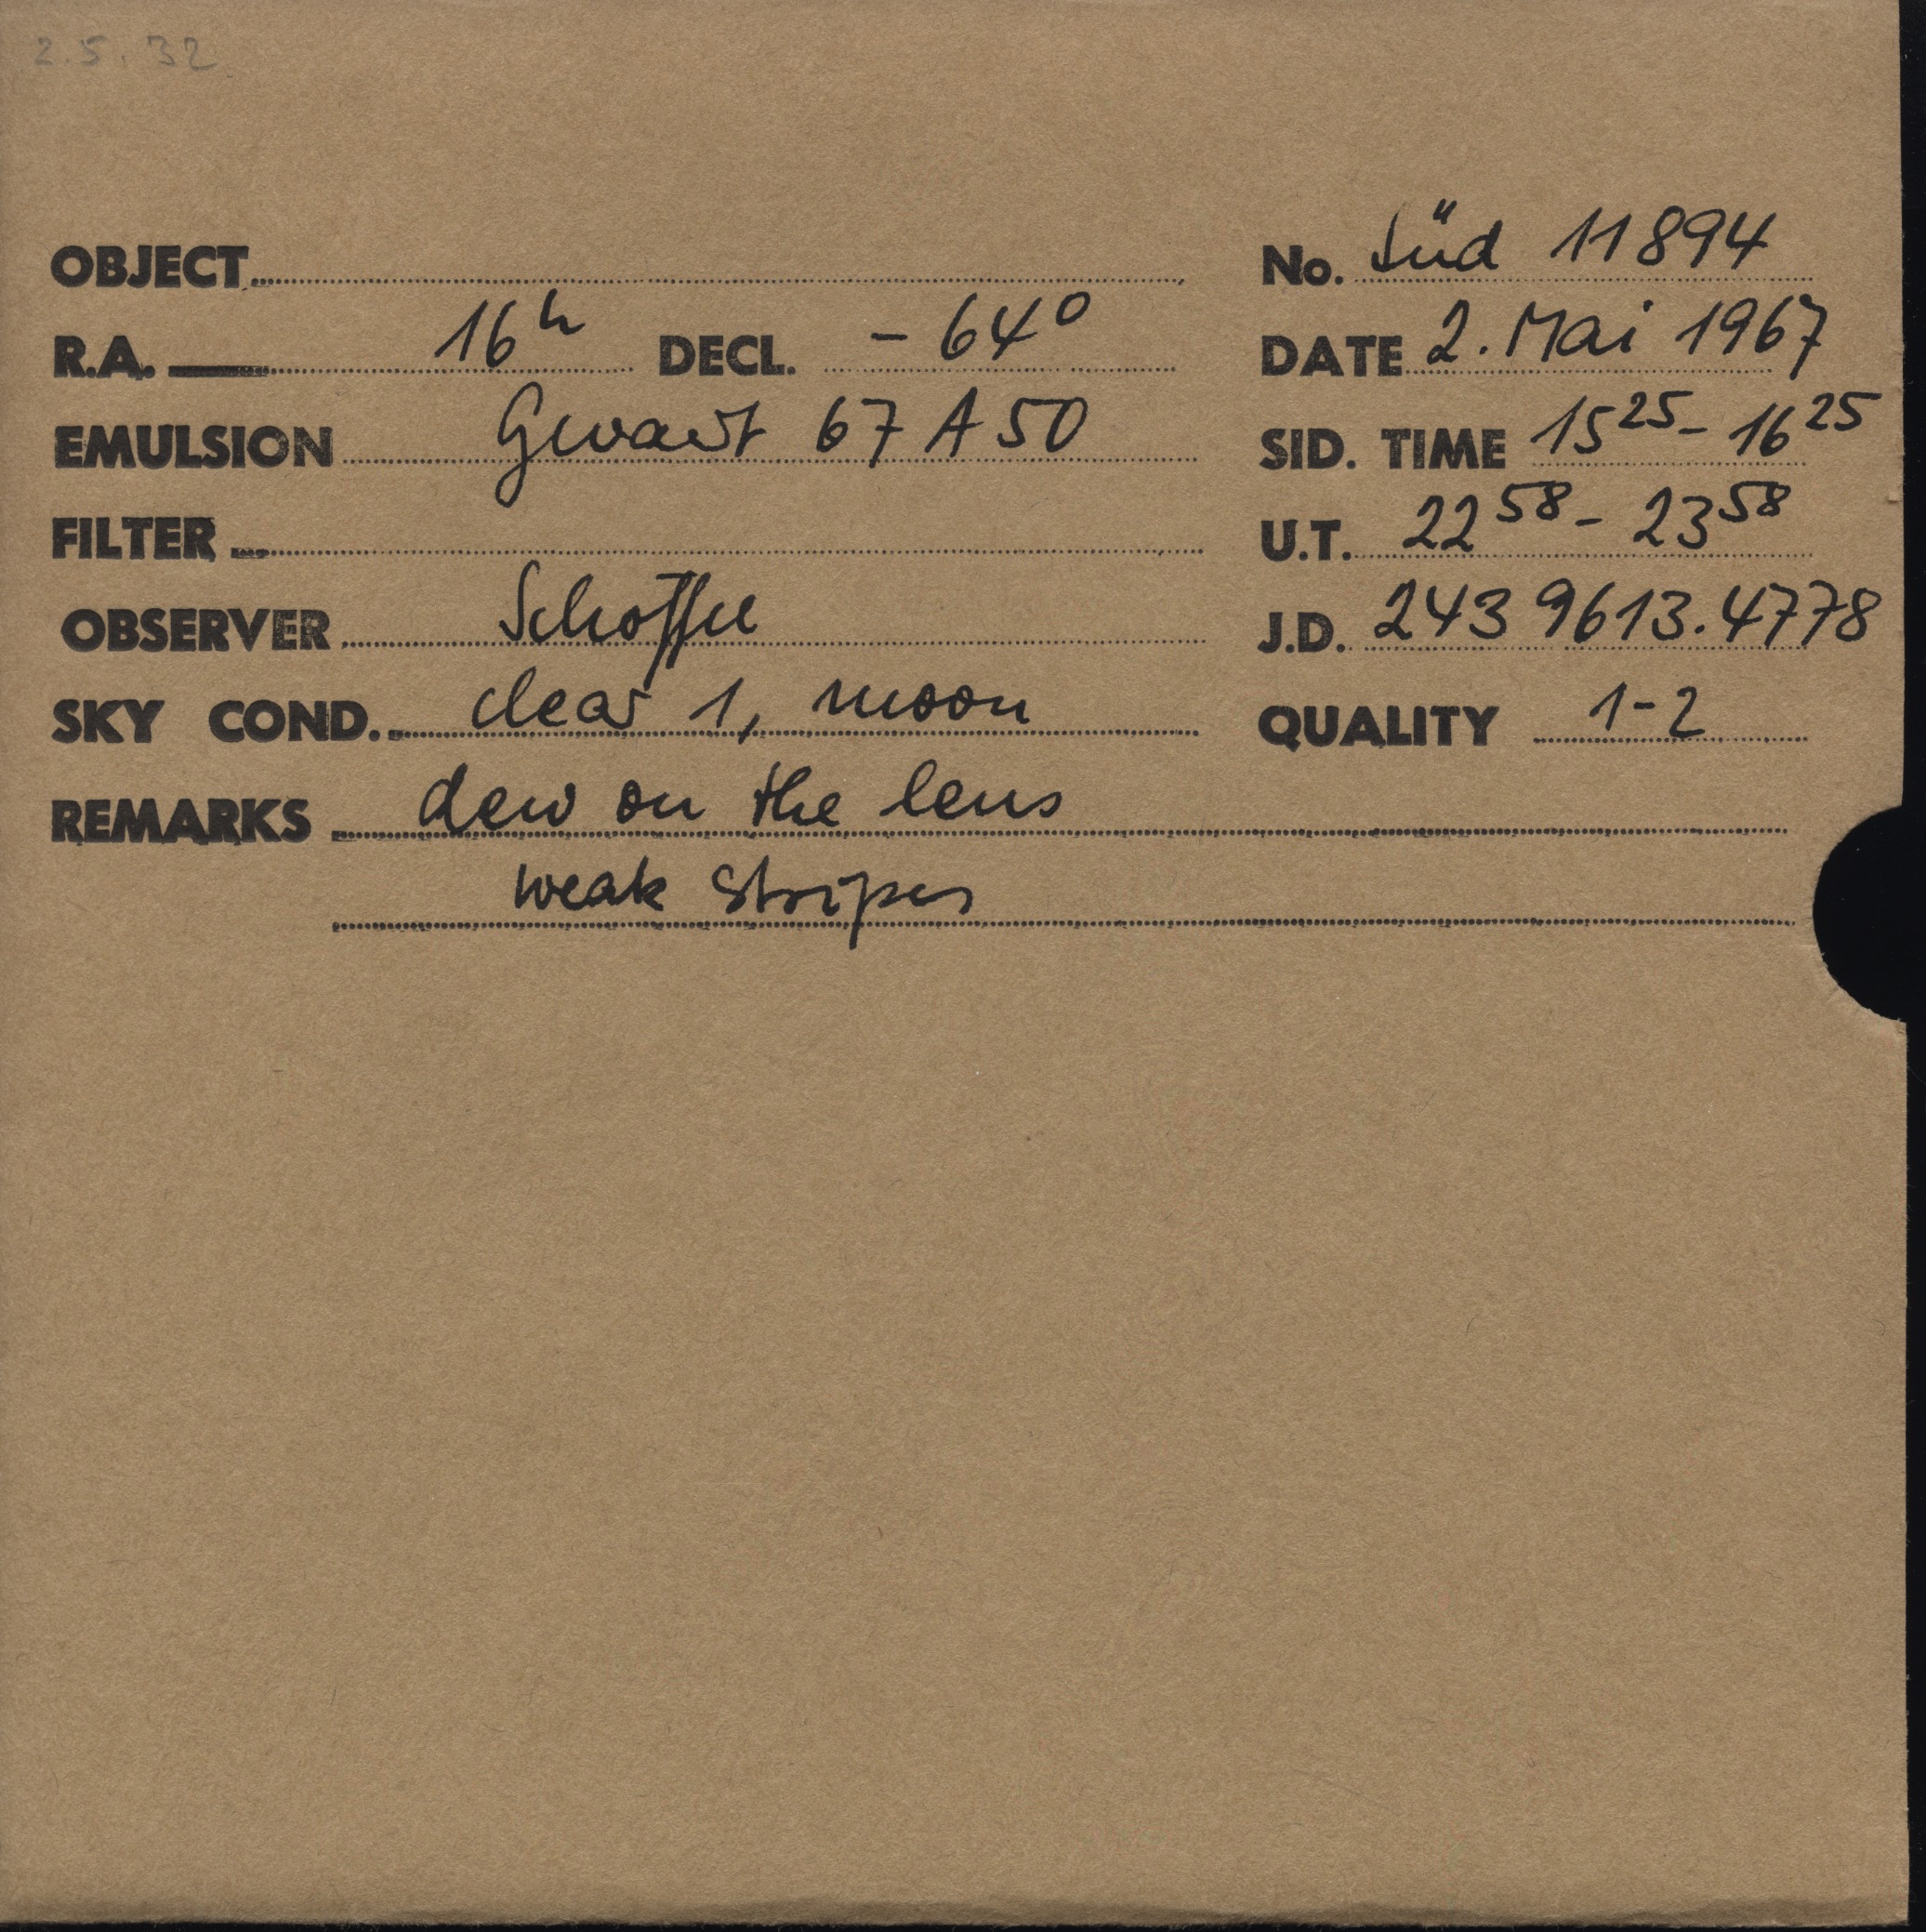 2.5.32
OBJECT
No. Süd 11894
R.A. 16h DECL. -64°
DATE 2. Mai 1967
EMULSION Gevaert 67 A 50
SID. TIME 15 25 - 16 25
FILTER
U.T. 22 58 - 23 58
OBSERVER Schöffel
J.D. 243 9613.4778
SKY COND. clear 1, moon
QUALITY 1-2
REMARKS dew on the lens
weak stripes